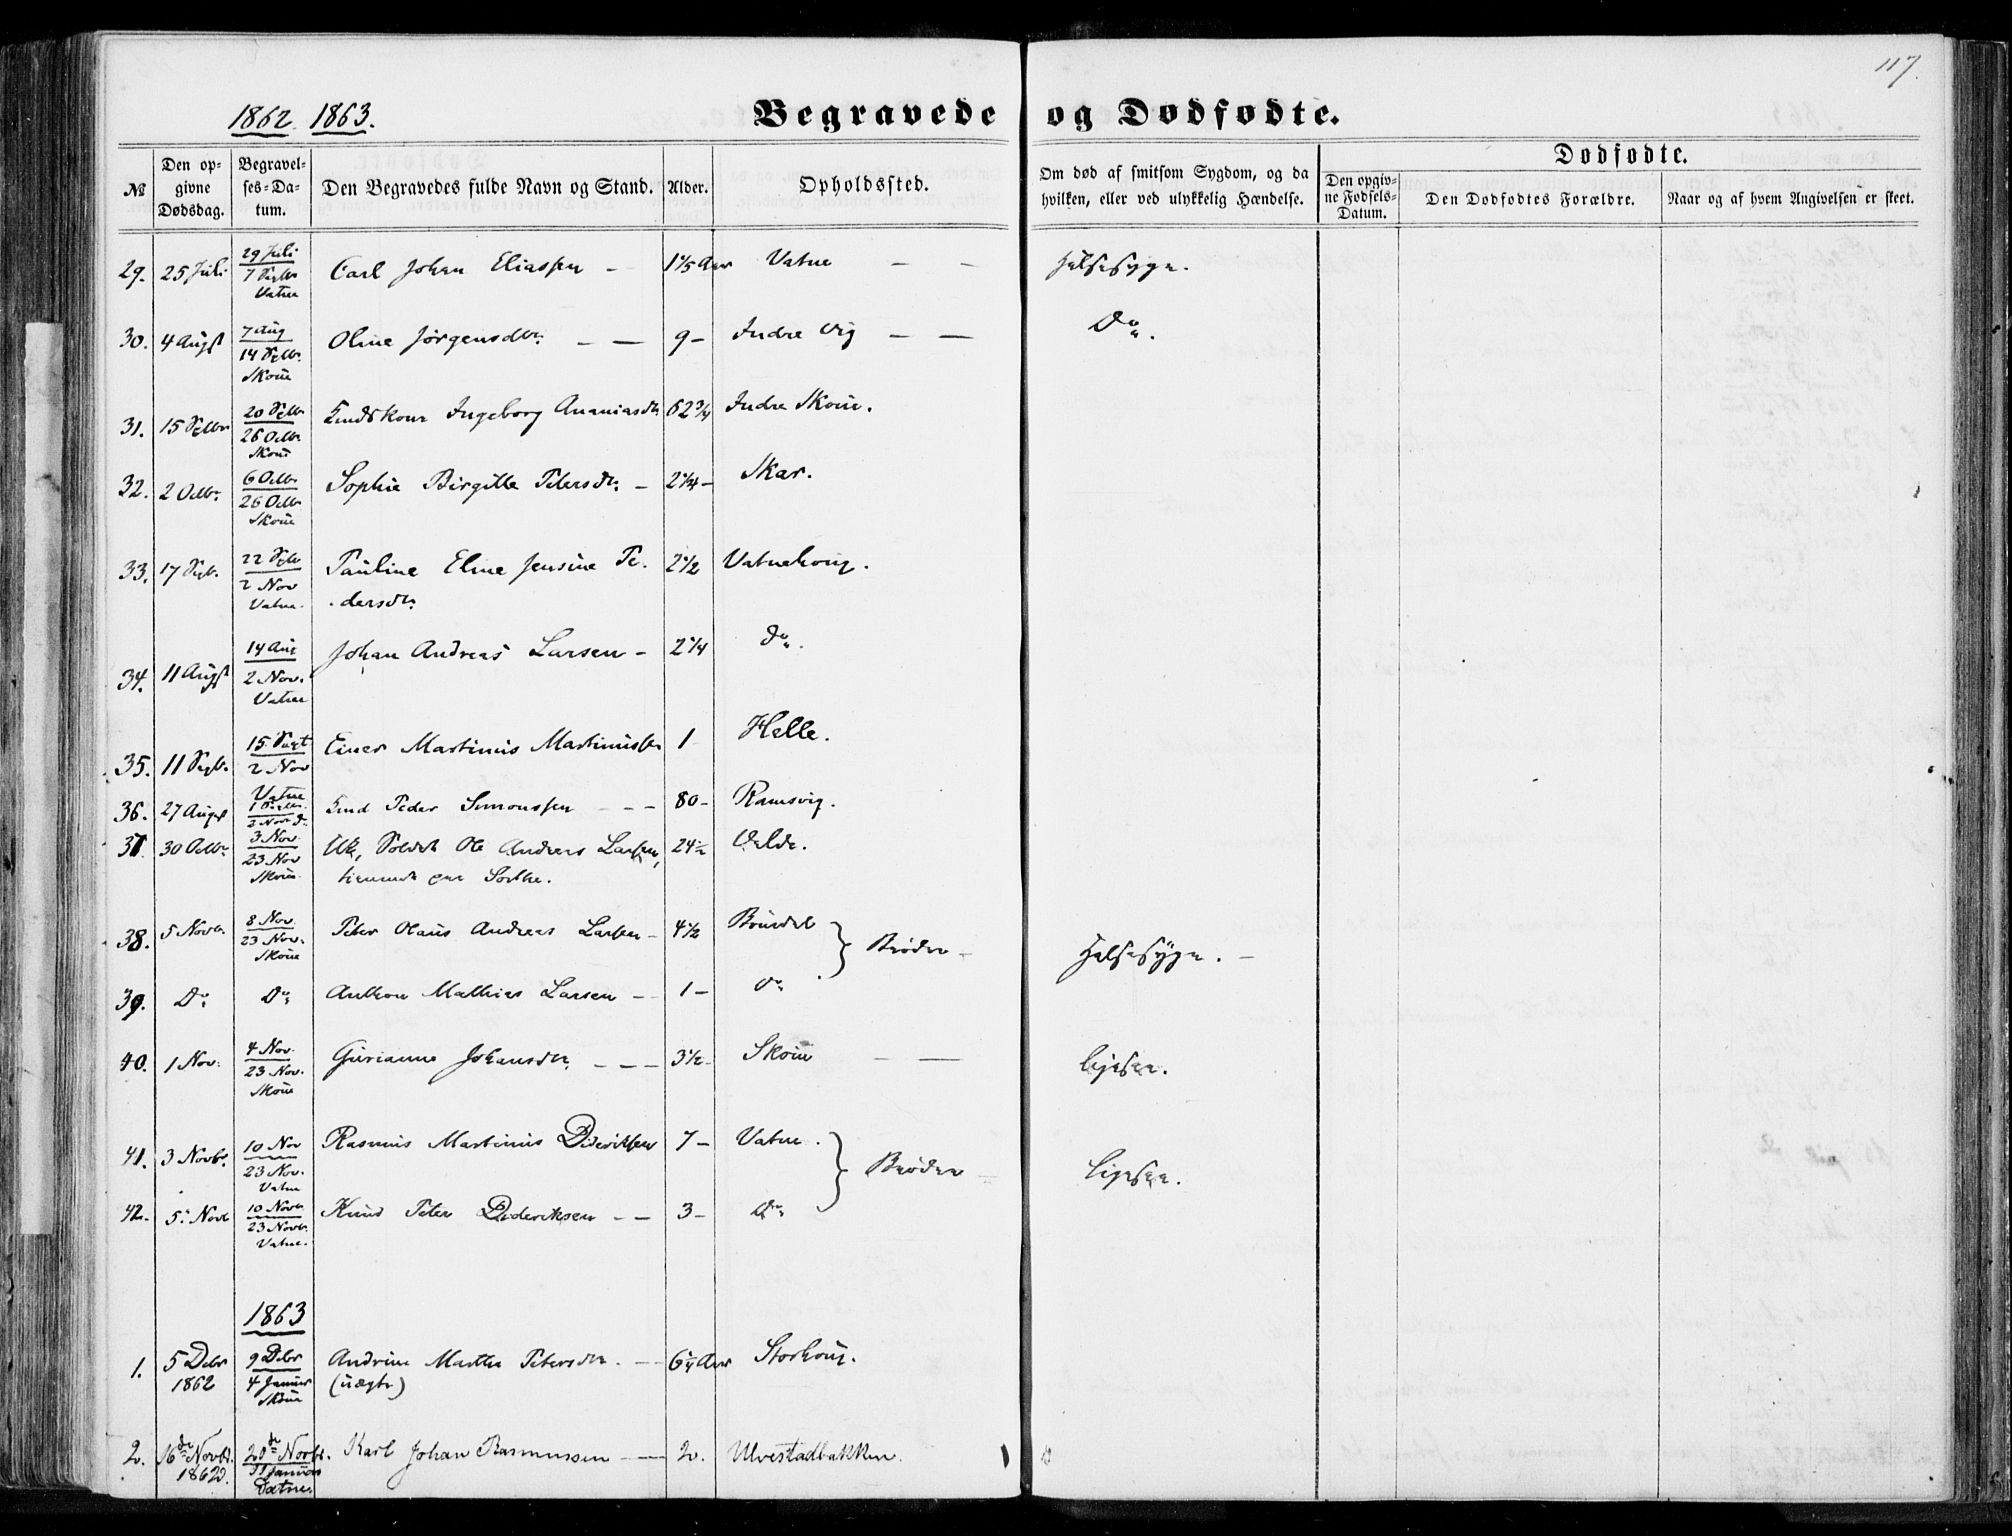 117.
1862. 1863.
Begravede og Dødfødte.
№
Den opgivne Dødsdag.
Begravelses-Datum.
Den Begravedes fulde Navn og Stand.
Alder.
Opholdssted.
Om død af smitsom Sygdom, og da hvilken, eller ved ulykkelig Hændelse.
Dødfødte.
Den opgivne Fødsels-Datum.
Den Dødfødtes Forældre.
Naar og af hvem Angivelsen er skeet.
29. 25 Juli 29 Juli Carl Johan Eliassen - 1 1/5 Aar Vatne — — Halsesyge.
7 Septbr
Vatne
30. 4 Augst 7 Aug Oline Jørgensdtr. — — 9 - Indre Vig — — Do.
14 Septbr.
Skoue
31. 15 Septbr 20 Septbr Ingeborg Ananiasdtr 62 3/4 Indre Skoue.
26 Octbr
Skoue
32. 2 Octbr. 6 Octbr Sophie Birgitte Petersdtr. - 2 1/4 - Skar.
26 Octbr
Skoue
33. 17 Septbr. 22 Septbr Pauline Eline Jensine Pe- 2 1/2 Vatnehoug.
2 Nov -dersdtr.
Vatne.
34. 11 Augst 14 Aug Johan Andreas Larsen - 2 1/4 Do.
2 Nov.
Vatne
35. 11 Septbr. 15 Sept Einer Martinus Martinussen 1 Helle.
2 Nov
Vatne
36. 27 Augst 1 Septbr. Peder Simonssen - - - 80 - Ramsvig.
2 Nov. Do
37. 30 Octbr. 3 Nov. Soldat Ole Andreas Larsen, 24 1/2
23 Nov
Skoue.
38. 5 Novbr. 8 Nov. Peter Olaus Andreas Larsen - 4 1/2 Brusdal } Brødre - Halsesyge. -
23 Nov.
Skoue
39. Do. Do. Anthon Mathias Larsen - - 1 - Do
40. 1 Nov. 4 Nov. Gurianne Johansdtr. - - - 3 1/2 - Skoue — — ligesaa.
23 Nov.
Skoue
41. 3 Novbr. 10 Nov Rasmus Martinus Dideriksen 7 - Vatne. } Brødre - ligesaa.
23 Nov.
Vatne
42. 5. Novbr 10 Novbr. Knud Peter Dideriksen - - 3 - Do.
23 Novbr.
Vatne.
1863
1. 5 Debr 9 Debr Andrine Marthe Petersdtr. - 6 1/4 Aar Storhoug.
1862 4 Januar (uægte)
Skoue
2. 16de Novbr. 20de Novbr. Karl Johan Rasmussen - - 2. Ulvestadbakken.
1862. 11 Januar
Vatne.